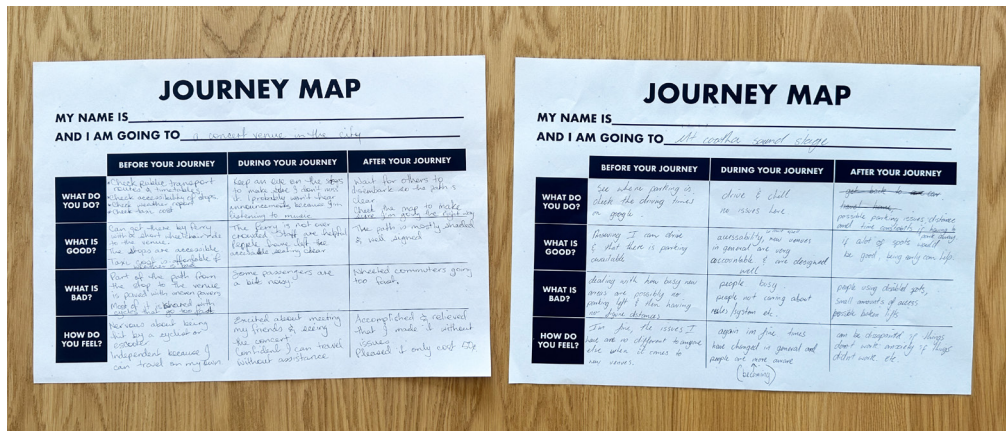 JOURNEY MAP
MY NAME IS
AND I AM GOING TO a concert venue in the city
BEFORE YOUR JOURNEY
DURING YOUR JOURNEY
AFTER YOUR JOURNEY
WHAT DO
YOU DO?
• Check public transport
routes & timetables,
• Check accessibility of stops
• Check weather report
• Check taxi cost
Keep an eye on the stops
to make sure I don't miss
it (probably won't hear
announcements because I'm
listening to music
Wait for others to
disembark so the path is
clear
Check the map to make
sure I'm going the right way
WHAT IS
GOOD?
Can get there by ferry
will be short wheel/ride
to the venue.
The stops are accessible
Taxi cost is affordable if
weather is bad
The ferry is not over
crowded. Staff are helpful
People have left the
accessible seating clear
The path is mostly shaded
& well signed
WHAT IS
BAD?
Part of the path from
the stop to the venue
is paved with uneven pavers
Most of it is shared with
cycles that go too fast
Some passengers are
a bit noisy
Wheeled commuters going
too fast,
HOW DO
YOU FEEL?
Nervous about being
hit by a cyclist or
escooter
Independent because I
can travel on my own
Excited about meeting
my friends & seeing
the concert
Confident I can travel
without assistance
Accomplished & relieved
that I made it without
issues
Pleased it only cost
JOURNEY MAP
MY NAME IS
AND I AM GOING TO Mt cootha sound stage
BEFORE YOUR JOURNEY
DURING YOUR JOURNEY
AFTER YOUR JOURNEY
WHAT DO
YOU DO?
See where parking is,
check the driving times
on google.
drive & chill
no issues here
possible parking issues, distance
and time constraints if having to
WHAT IS
GOOD?
Knowing I can drive
& that there is parking
available
accessability, new venues
in general are very
accountable & are designed
well
if alot of spots would
be good, being only one
WHAT IS
BAD?
dealing with how busy new
areas are possibly no
parking left & then having
far distances
people busy.
people not caring about
rules/system etc.
people using disabled spots,
small amounts of
possible broken lifts
HOW DO
YOU FEEL?
I'm fine, the issues I
have are no different to anyone
else when it comes to
new venues.
again im fine times
have changed in general and
people are more aware
(becoming)
can be disappointed if things
dont work anxiety if things
didnt work etc.